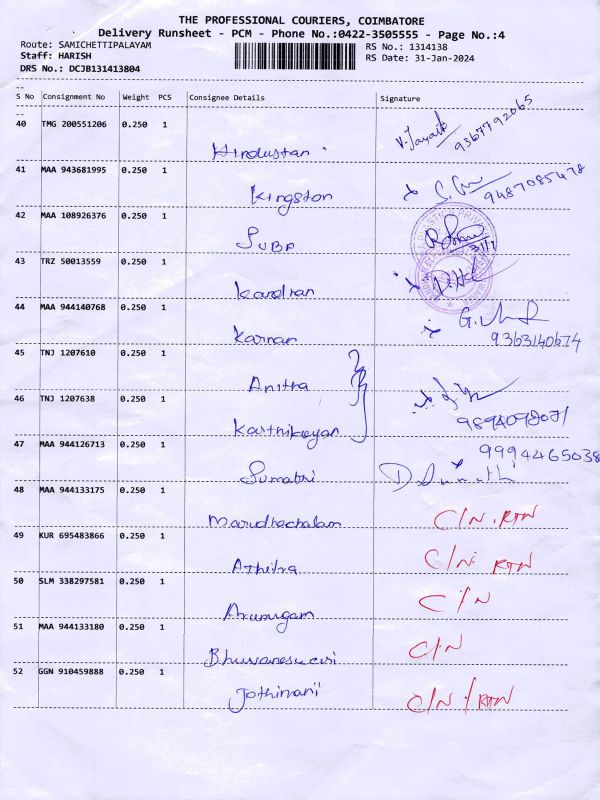 THE PROFESSIONAL COURIERS, COIMBATORE
Delivery Runsheet - PCM - Phone No.:0422-3505555 - Page No.:4
Route: SAMICHETTIPALAYAM RS No.: 1314138
Staff: HARISH RS Date: 31-Jan-2024
DRS No.: DCJB131413804
S No Consignment No Weight PCS Consignee Details Signature
40 TMG 200551206 0.250 1
Hindustan V. Jayan 9367792065
41 MAA 943681995 0.250 1
Kingston 9487085478
42 MAA 108926376 0.250 1
SUBA
43 TRZ 50013559 0.250 1
Kandhan
44 MAA 944140768 0.250 1
Karnan 9363140674
45 TNJ 1207610 0.250 1
Anitha
46 TNJ 1207638 0.250 1
Karthikeyan
47 MAA 944126713 0.250 1 9994465038
Sumathi
48 MAA 944133175 0.250 1
Marudhachalam C/N. RTN
49 KUR 695483866 0.250 1
Athitra C/N. RTN
50 SLM 338297581 0.250 1
Arumugam C/N
51 MAA 944133180 0.250 1
Bhuvaneswari C/N
52 GGN 910459888 0.250 1
Jothimani C/N / RTN